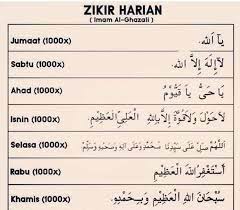 ZIKIR HARIAN
( Imam Al-Ghazali )
Jumaat (1000x) يَا اَللّٰه.
Sabtu (1000x) لَاۤ اِلٰهَ اِلَّا اللّٰه.
Ahad (1000x) يَا حَيُّ يَا قَيُّوْمُ
Isnin (1000x) لَاحَوْلَ وَلَاقُوَّةَ اِلَّا بِاللّٰهِ الْعَلِيِّ الْعَظِيْمِ
Selasa (1000x) اَللّٰهُمَّ صَلِّ عَلَى سَيِّدِنَا مُحَمَّدٍ وَعَلَى اٰلِهِ وَصَحْبِهِ وَسَلِّمْ
Rabu (1000x) اَسْتَغْفِرُ اللّٰهَ الْعَظِيْمَ
Khamis (1000x) سُبْحَانَ اللّٰهِ الْعَظِيْمِ وَبِحَمْدِهِ